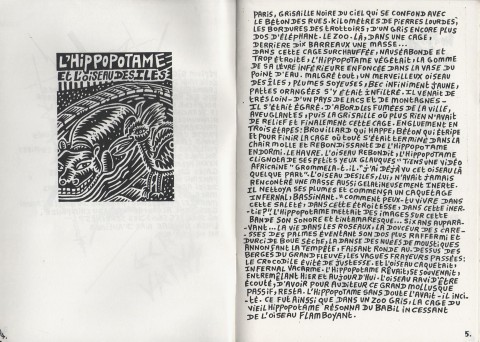 L'HIPPOPOTAME
ET L'OISEAU DES ÎLES
PARIS, GRISAILLE NOIRE DU CIEL QUI SE CONFOND AVEC
LE BÉTON DES RUES. KILOMÈTRES DE PIERRES LOURDES,
LES BORDURES DES TROTTOIRS, D'UN GRIS ENCORE PLUS
DOS D'ÉLÉPHANT. LE ZOO. LÀ, DANS UNE CAGE,
DERRIÈRE DIX BARREAUX UNE MASSE...
DANS CETTE CAGE SURCHAUFFÉE, NAUSÉABONDE ET
TROP ÉTROITE, L'HIPPOPOTAME VÉGÉTAIT, LA GOMME
DE SA LÈVRE INFÉRIEURE ENFONCÉE DANS LA VASE DU
POINT D'EAU. MALGRÉ TOUT, UN MERVEILLEUX OISEAU
DES ÎLES, PLUMES SOYEUSES, BEC INFINIMENT JAUNE,
PATTES ORANGÉES S'Y ÉTAIT INFILTRÉ. IL VENAIT DE
TRÈS LOIN - D'UN PAYS DE LACS ET DE MONTAGNES -
IL S'ÉTAIT ÉGARÉ. D'ABORD LES FUMÉES DE LA VILLE,
AVEUGLANTES, PUIS LA GRISAILLE OÙ PLUS RIEN N'AVAIT
DE RELIEF ET FINALEMENT CETTE CAGE. ENGLUEMENT EN
TROIS ÉTAPES: BROUILLARD QUI HAPPE, BÉTON QUI ÉTRIPE
ET POUR FINIR LA CAGE OÙ TOUT S'ÉTAIT TERMINÉ DANS LA
CHAIR MOLLE ET REBONDISSANTE DE L'HIPPOPOTAME
ENDORMI. LE HAVRE. L'OISEAU REBONDIT, L'HIPPOPOTAME
CLIGNOTA DE SES PETITS YEUX GLAUQUES "TIENS UNE VIDÉO
AFRICAINE" GROMMELA-T-IL. "J'AI DÉJÀ VU CET OISEAU LÀ
QUELQUE PART". L'OISEAU DES ILES, LUI, N'AVAIT JAMAIS
RENCONTRÉ UNE MASSE AUSSI GÉLATINEUSEMENT INERTE.
IL NETTOYA SES PLUMES ET COMMENÇA UN CAQUETAGE
INFERNAL, BASSINANT. "COMMENT PEUX-TU VIVRE DANS
CETTE SALETÉ, DANS CETTE ÉTROITESSE, DANS CETTE INER-
-TIE?" L'HIPPOPOTAME METTAIT DES IMAGES SUR CETTE
BANDE SON SONORE ET TINTAMARESQUE... SIX ANS AUPARA-
VANT... LA VIE DANS LES ROSEAUX, LA DOUCEUR DES CARE-
-SSES DES PALMES ÉVENTANT SON DOS PLUS RAFFERMI ET
DURCI DE BOUE SÈCHE, LA DANSE DES NUÉES DE MOUSTIQUES
ANNONÇANT LA TEMPÊTE, FAISANT RONDE AU-DESSUS DES
BERGES DU GRAND FLEUVE, LES VAGUES FRAYEURS PASSÉES:
LE CROCODILE ÉVITÉ DE JUSTESSE. ET L'OISEAU CAQUETAIT;
INFERNAL VACARME. L'HIPPOPOTAME RÊVAIT, SE SOUVENAIT,
ENTREMÊLANT HIER ET AUJOURD'HUI. L'OISEAU RAVI D'ÊTRE
ÉCOUTÉ, D'AVOIR POUR AUDITEUR CE GRAND MOLLUSQUE
PASSIF, RESTA. L'HIPPOPOTAME SANS DOUTE L'AVAIT-IL INCI-
-TÉ. CE FUT AINSI QUE DANS UN ZOO GRIS, LA CAGE DU
VIEIL HIPPOPOTAME RÉSONNA DU BABIL INCESSANT
DE L'OISEAU FLAMBOYANT.
5.